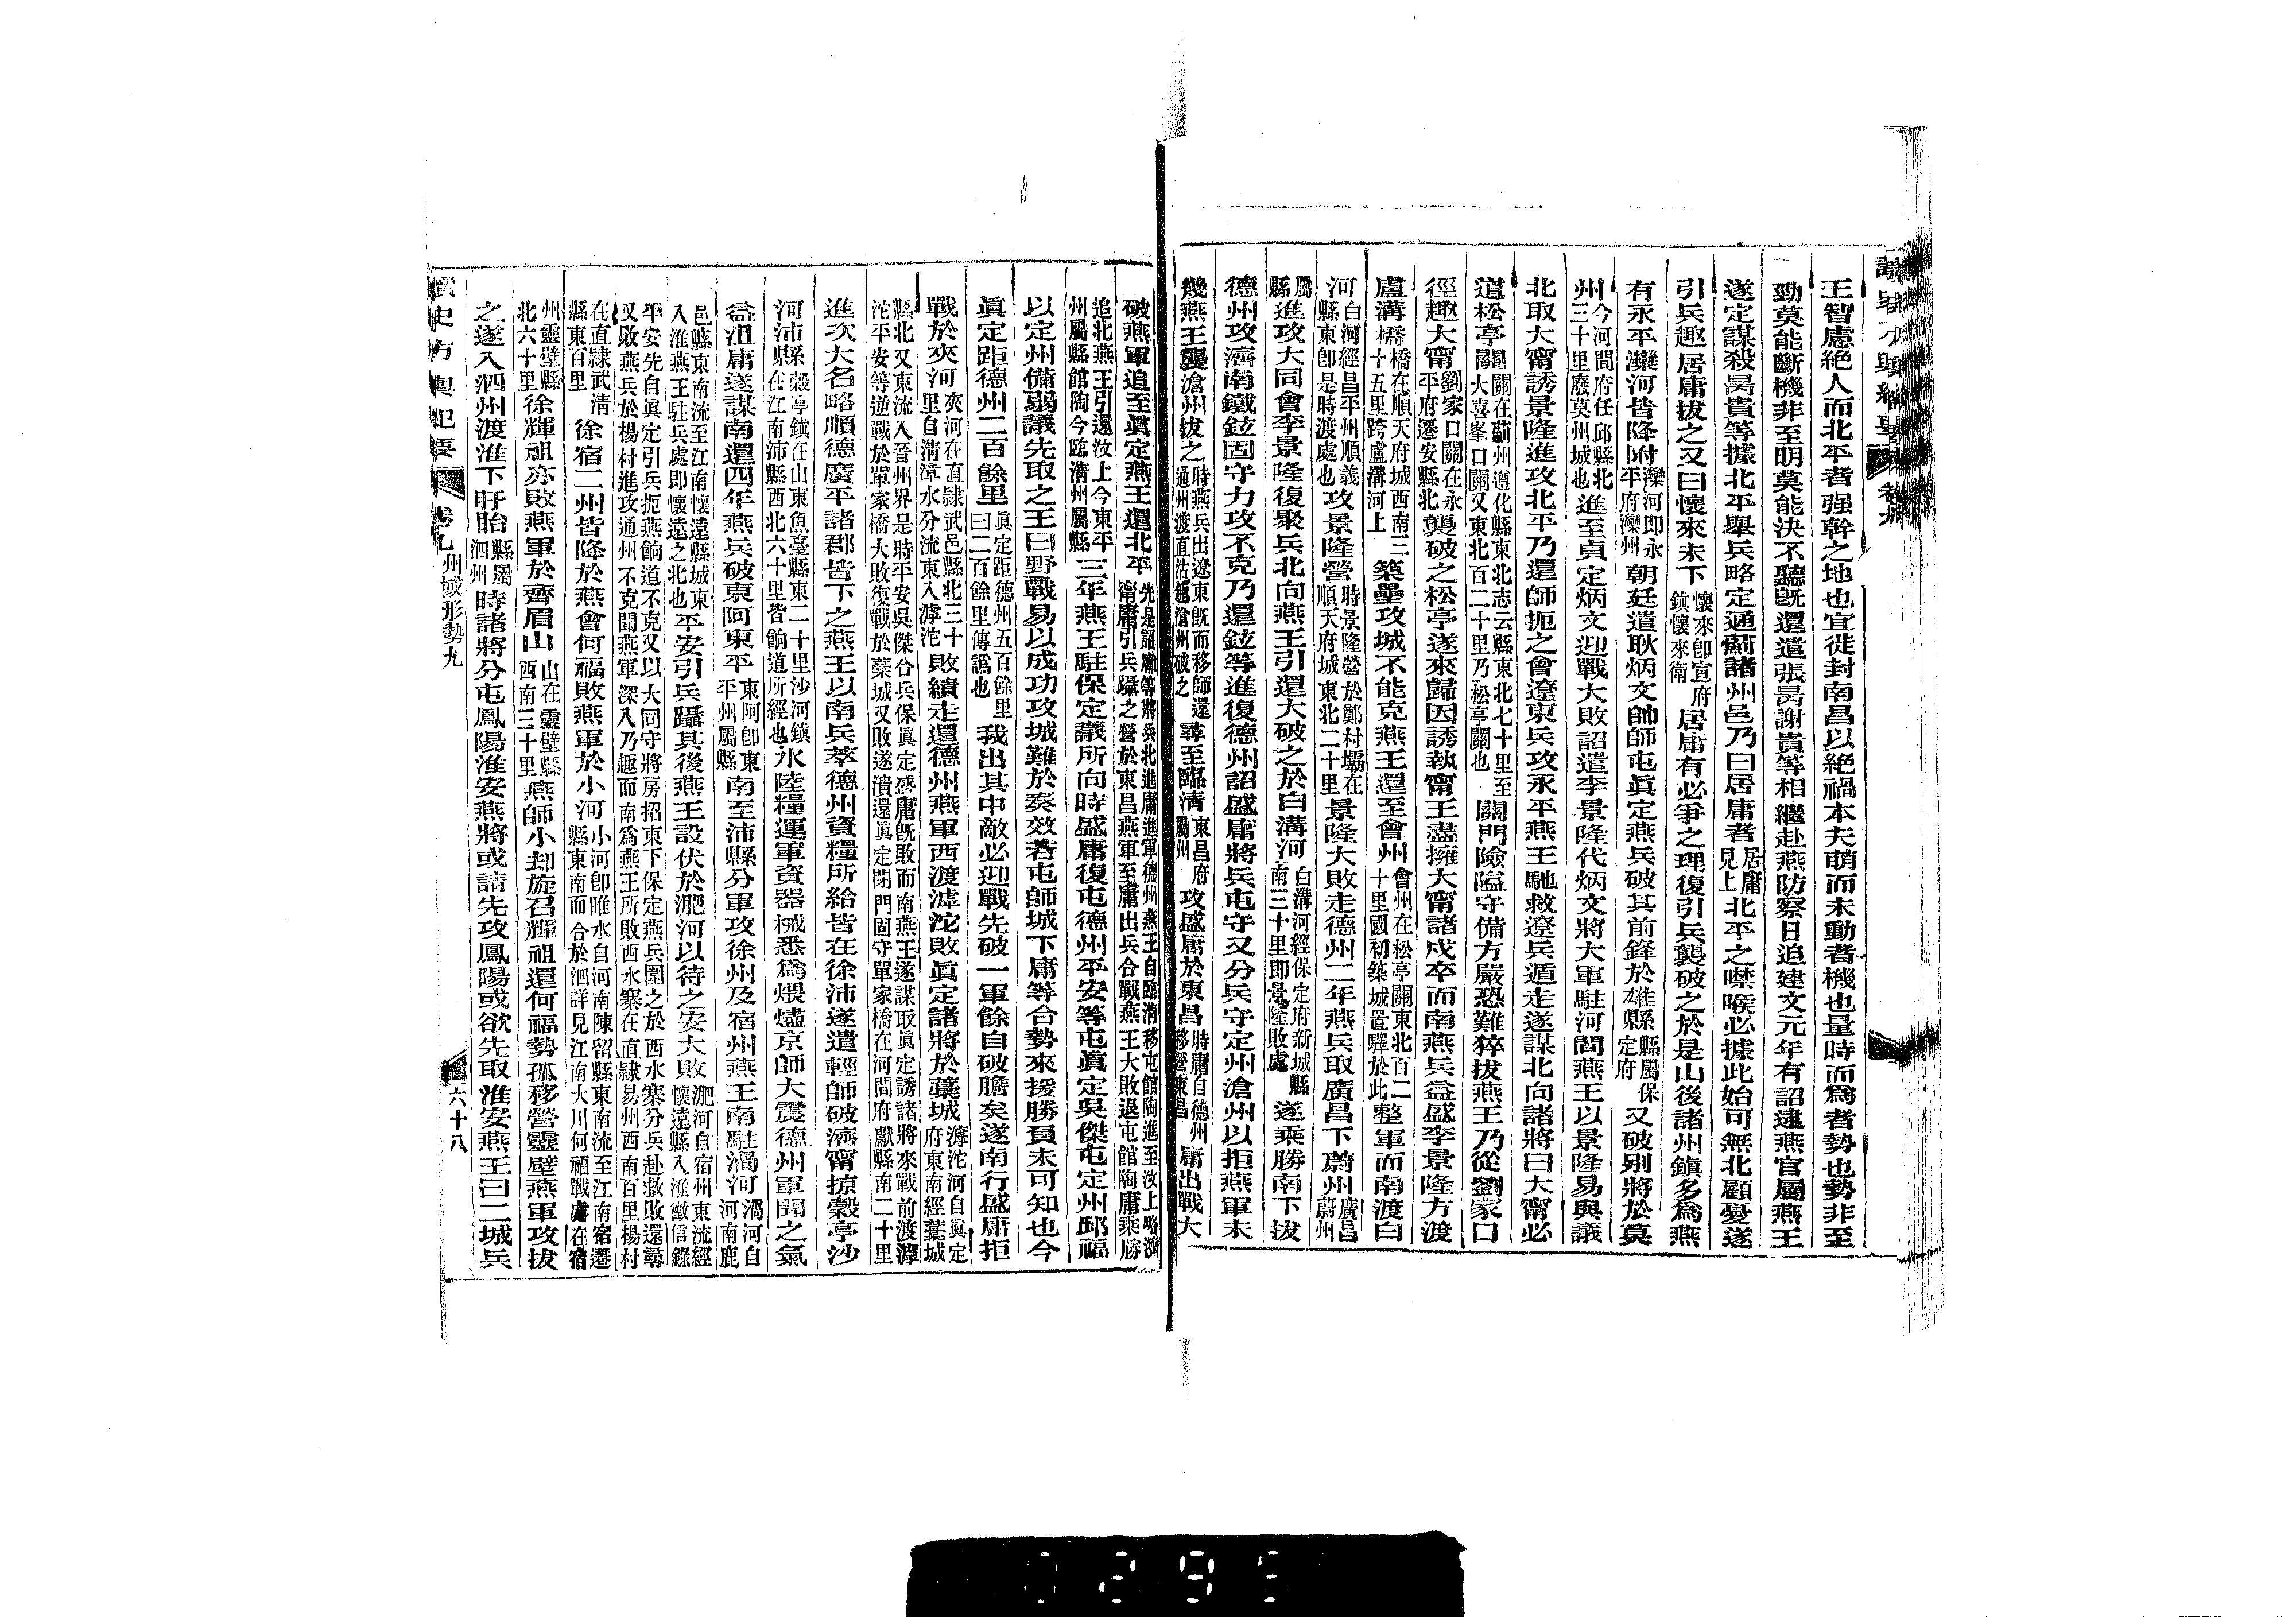 讀史方輿紀要 卷九
王智慮絕人而北平者强幹之地也宜徙封南昌以絕禍本夫萌而未動者機也量時而爲者勢也勢非至
勁莫能斷機非至明莫能決不聽旣還遣張昺謝貴等相繼赴燕防察日迫建文元年有詔逮燕官屬燕王
遂定謀殺昺貴等據北平舉兵略定通薊諸州邑乃曰居庸者居庸見上北平之噤喉必據此始可無北顧憂遂
引兵趣居庸拔之又曰懷來未下懷來卽宣府鎭懷來衞居庸有必爭之理復引兵襲破之於是山後諸州鎭多爲燕
有永平灤河皆降附灤河卽永平府灤州朝廷遣耿炳文帥師屯眞定燕兵破其前鋒於雄縣縣屬保定府又破别將於莫
州今河間府任邱縣北三十里廢莫州城也進至眞定炳文迎戰大敗詔遣李景隆代炳文將大軍駐河間燕王以景隆易與議
北取大甯誘景隆進攻北平乃還師扼之會遼東兵攻永平燕王馳救遼兵遁走遂謀北向諸將曰大甯必
道松亭關關在薊州遵化縣東北志云縣東北七十里至關大喜峯口關又東北百二十里乃松亭關也關門險隘守備方嚴恐難猝拔燕王乃從劉家口
徑趣大甯劉家口關在永平府遷安縣北襲破之松亭遂來歸因誘執甯王盡擁大甯諸戍卒而南燕兵益盛李景隆方渡
盧溝橋橋在順天府城西南三十五里跨盧溝河上築壘攻城不能克燕王還至會州會州在松亭關東北百二十里國初築城置驛於此整軍而南渡白
河白河經昌平州順義縣東卽是時渡處也攻景隆營時景隆營於鄭村壩在順天府城東北二十里景隆大敗走德州二年燕兵取廣昌下蔚州廣昌蔚州
屬縣進攻大同會李景隆復聚兵北向燕王引還大破之於白溝河白溝河經保定府新城縣南三十里卽景隆敗處遂乘勝南下拔
德州攻濟南鐵鉉固守力攻不克乃還鉉等進復德州詔盛庸將兵屯守又分兵守定州滄州以拒燕軍未
幾燕王襲滄州拔之時燕兵出遼東旣而移師還通州渡直沽趨滄州破之尋至臨淸東昌府屬州攻盛庸於東昌時庸自德州移營東昌庸出戰大
破燕軍追至眞定燕王還北平先是詔庸等將兵北進庸進軍德州燕王自臨淸移屯館陶進至汶上略濟甯庸引兵躡之營於東昌燕軍至庸出兵合戰燕王大敗退屯館陶庸乘勝
追北燕王引還汶上今東平州屬縣館陶今臨淸州屬縣三年燕王駐保定議所向時盛庸復屯德州平安等屯眞定吳傑屯定州邱福
以定州備弱議先取之王曰野戰易以成功攻城難於奏效若屯師城下庸等合勢來援勝負未可知也今
眞定距德州二百餘里眞定距德州五百餘里曰二百餘里傳譌也我出其中敵必迎戰先破一軍餘自破膽矣遂南行盛庸拒
戰於夾河夾河在直隸武邑縣北三十里自淸漳水分流東入滹沱敗績走還德州燕軍西渡滹沱敗眞定諸將於藁城滹沱河自眞定府東南經藁城
縣北又東流入晉州界是時平安吳傑合兵保眞定盛庸旣敗而南燕王遂謀取眞定誘諸將來戰前渡滹沱平安等逆戰於單家橋大敗復戰於藁城又敗遂潰還眞定閉門固守單家橋在河間府獻縣南二十里
進次大名略順德廣平諸郡皆下之燕王以南兵萃德州資糧所給皆在徐沛遂遣輕師破濟甯掠穀亭沙
河沛縣穀亭鎭在山東魚臺縣東二十里沙河鎭在江南沛縣西北六十里皆餉道所經也水陸糧運軍資器械悉爲煨燼京師大震德州軍聞之氣
益沮庸遂謀南還四年燕兵破東阿東平東阿卽東平州屬縣南至沛縣分軍攻徐州及宿州燕王南駐渦河渦河自河南鹿
邑縣東南流至江南懷遠縣城東入淮燕王駐兵處卽懷遠之北也平安引兵躡其後燕王設伏於淝河以待之安大敗淝河自宿州東流經懷遠縣入淮徵信錄
平安先自眞定引兵扼燕餉道不克又以大同守將房招東下保定燕兵圍之於西水寨分兵赴救敗還尋又敗燕兵於楊村進攻通州不克聞燕軍深入乃趣而南爲燕王所敗西水寨在直隸易州西南百里楊村
在直隸武淸縣東百里徐宿二州皆降於燕會何福敗燕軍於小河小河卽睢水自河南陳留縣東南流至江南宿遷縣東南而合於泗詳見江南大川何福戰處在宿
州靈壁縣北六十里徐輝祖亦敗燕軍於齊眉山山在靈壁縣西南三十里燕師小却旋召輝祖還何福勢孤移營靈壁燕軍攻拔
之遂入泗州渡淮下盱眙縣屬泗州時諸將分屯鳳陽淮安燕將或請先攻鳳陽或欲先取淮安燕王曰二城兵
讀史方輿紀要 卷九 州域形勢九 六十八